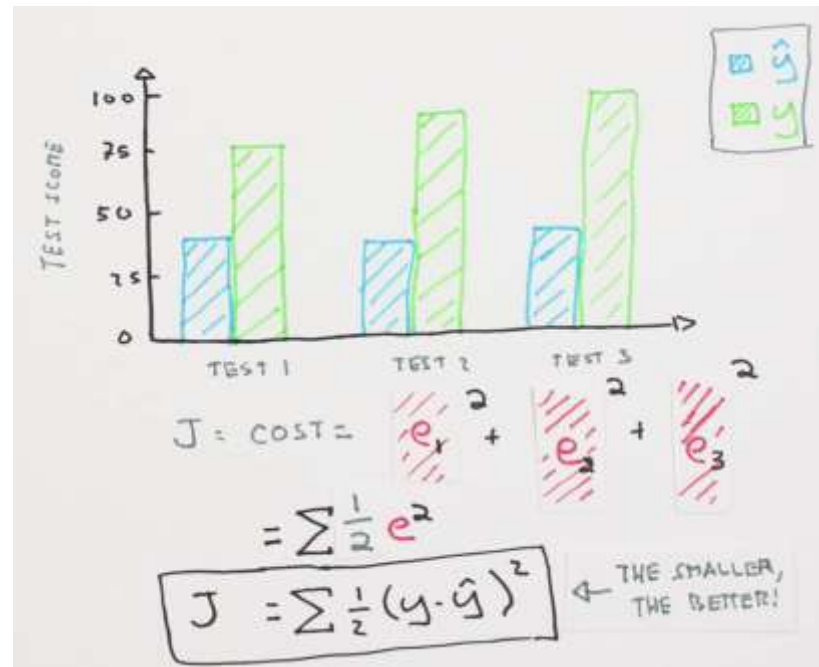 ŷ
y
TEST SCORE
100
75
50
25
0
TEST 1 TEST 2 TEST 3
J = COST = e₁² + e₂² + e₃²
= ∑ 1/2 e²
J = ∑ 1/2 (y - ŷ)²
← THE SMALLER,
THE BETTER!